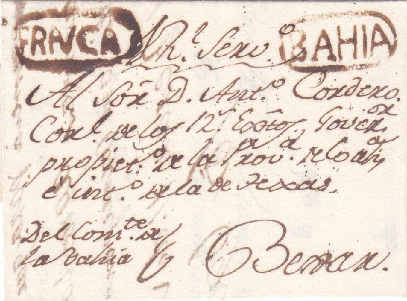 FRANCA
Rl. Servo.
BAHIA
Al Sor. D. Anto. Cordero
Corl. de los Rs. Extos, Goveror.
propieto. de la Prova. de Coa
e into. de la de Texas.
Del Comte. de
la Bahia
Bexar.